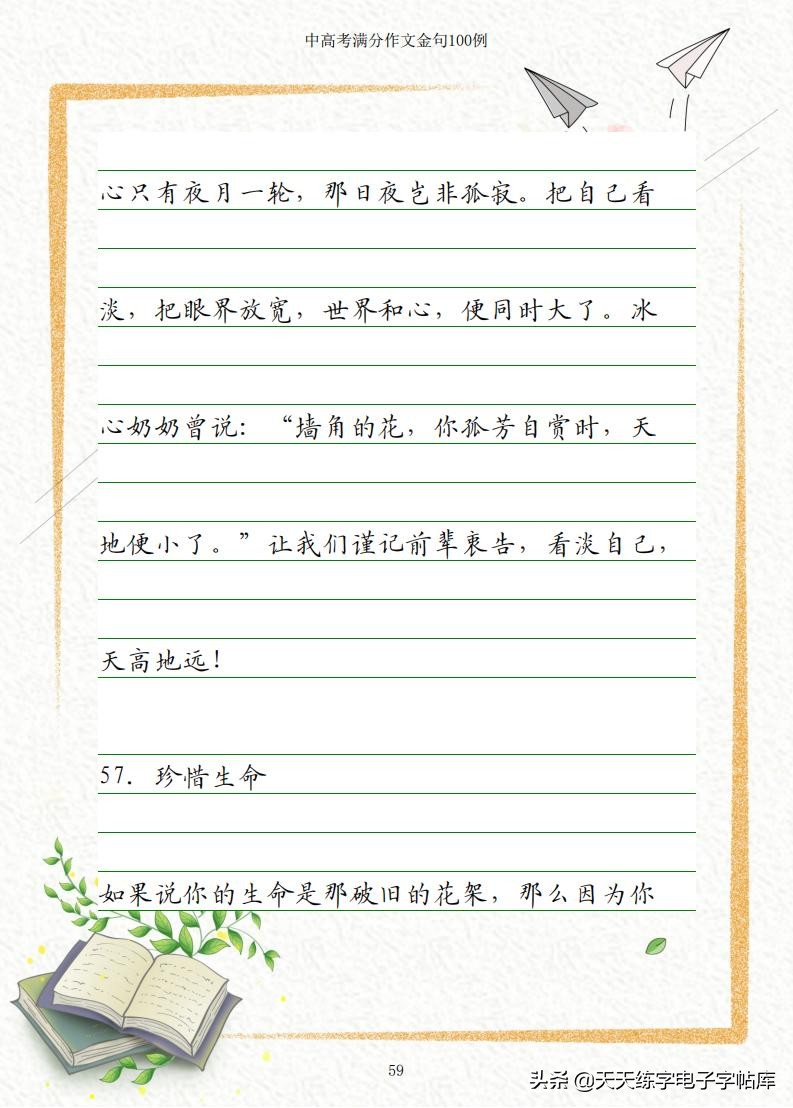 中高考满分作文金句100例
心只有夜月一轮，那日夜岂非孤寂。把自己看
淡，把眼界放宽，世界和心，便同时大了。冰
心奶奶曾说：“墙角的花，你孤芳自赏时，天
地便小了。”让我们谨记前辈衷告，看淡自己，
天高地远！
57. 珍惜生命
如果说你的生命是那破旧的花架，那么因为你
59
头条 @天天练字电子字帖库